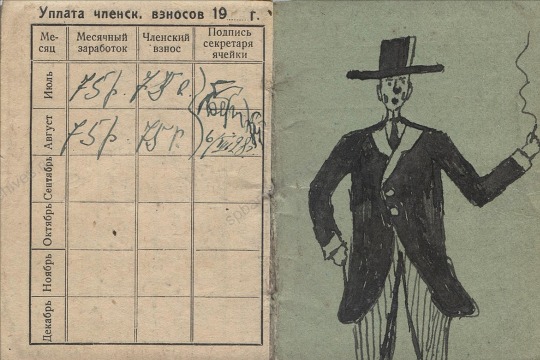 Уплата членск. взносов 19 г.
Ме-
сяц
Месячный
заработок
Членский
взнос
Подпись
секретаря
ячейки
Июль
75 р.
75 к.
Август
75 р.
75 к.
Сентябрь
Октябрь
Ноябрь
Декабрь